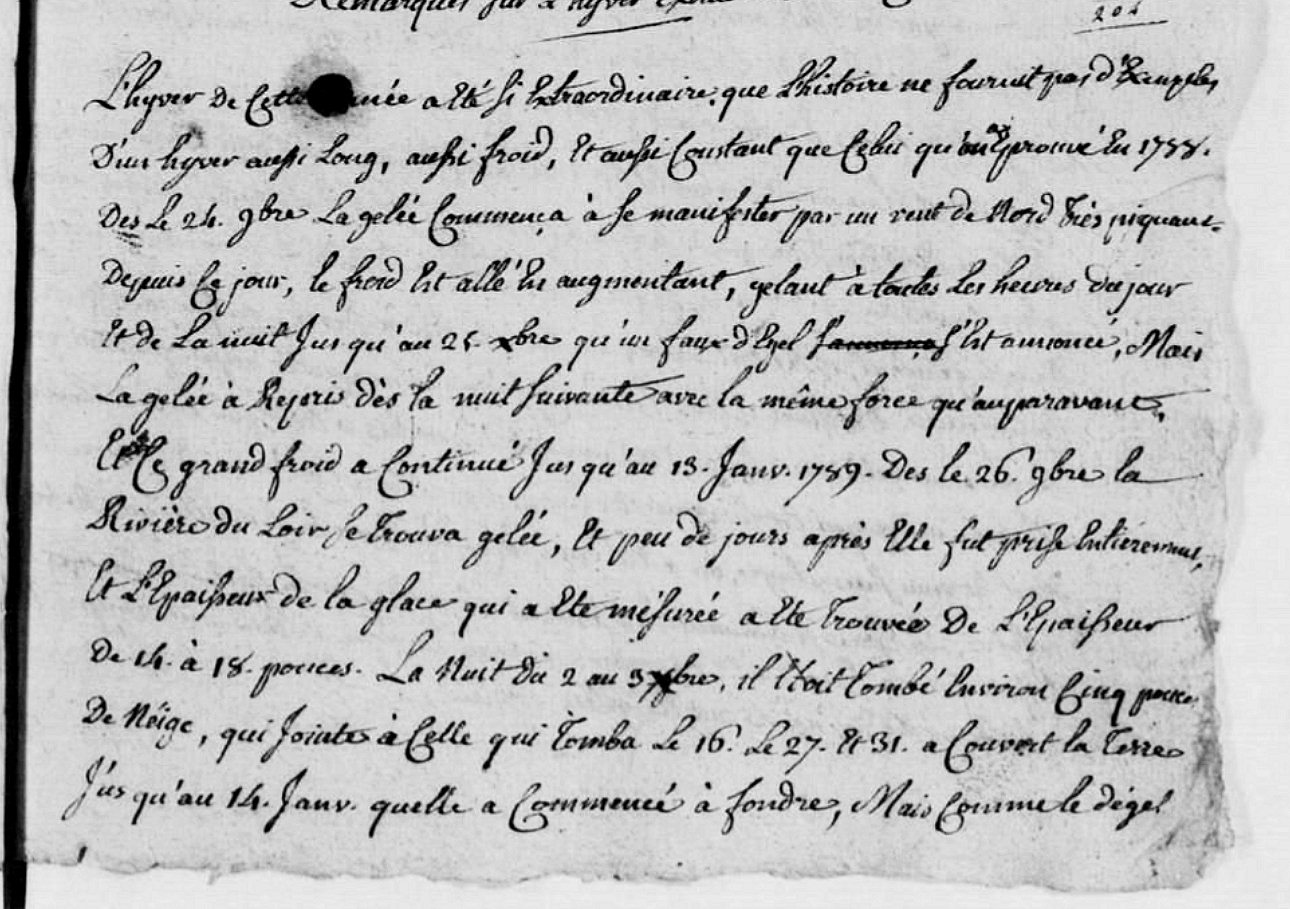 Remarques sur L'hyver
202
L'hyver De Cette année a Eté si Extraordinaire, que L'histoire ne fournit pas d'Exemples
D'un hyver aussi Long, aussi froid, Et aussi Constant que Celui qu'on a Eprouvé En 1788.
Des Le 24. 9bre La gelée Commença à se manifester par un vent de Nord Très piquant-
Depuis Ce jour, le froid Est allé En augmentant, gelant à toutes Les heures du jour
Et de La nuit Jusqu'au 25. xbre qu'un faux dEgel s'Est annoncé, Mais
La gelée à Repris dès la nuit suivante avec la même force qu'auparavant,
Et Ce grand froid a Continué Jusqu'au 13. Janv. 1789. Des le 26. 9bre la
Rivière du Loir se Trouva gelée, Et peu de jours après Elle fut prise Entièrement,
Et L'Epaisseur de la glace qui a Eté mésurée a Eté Trouvée De L'Epaisseur
De 14. à 18. pouces. La Nuit du 2 au 3 xbre, il Etoit Tombé Environ Cinq pouces
De Nëige, qui Jointe à Celle qui Tomba Le 16. Le 27. Et 31. a Couvert la Terre
Jusqu'au 14. Janv. quelle a Commencé à fondre, Mais Comme le dégel